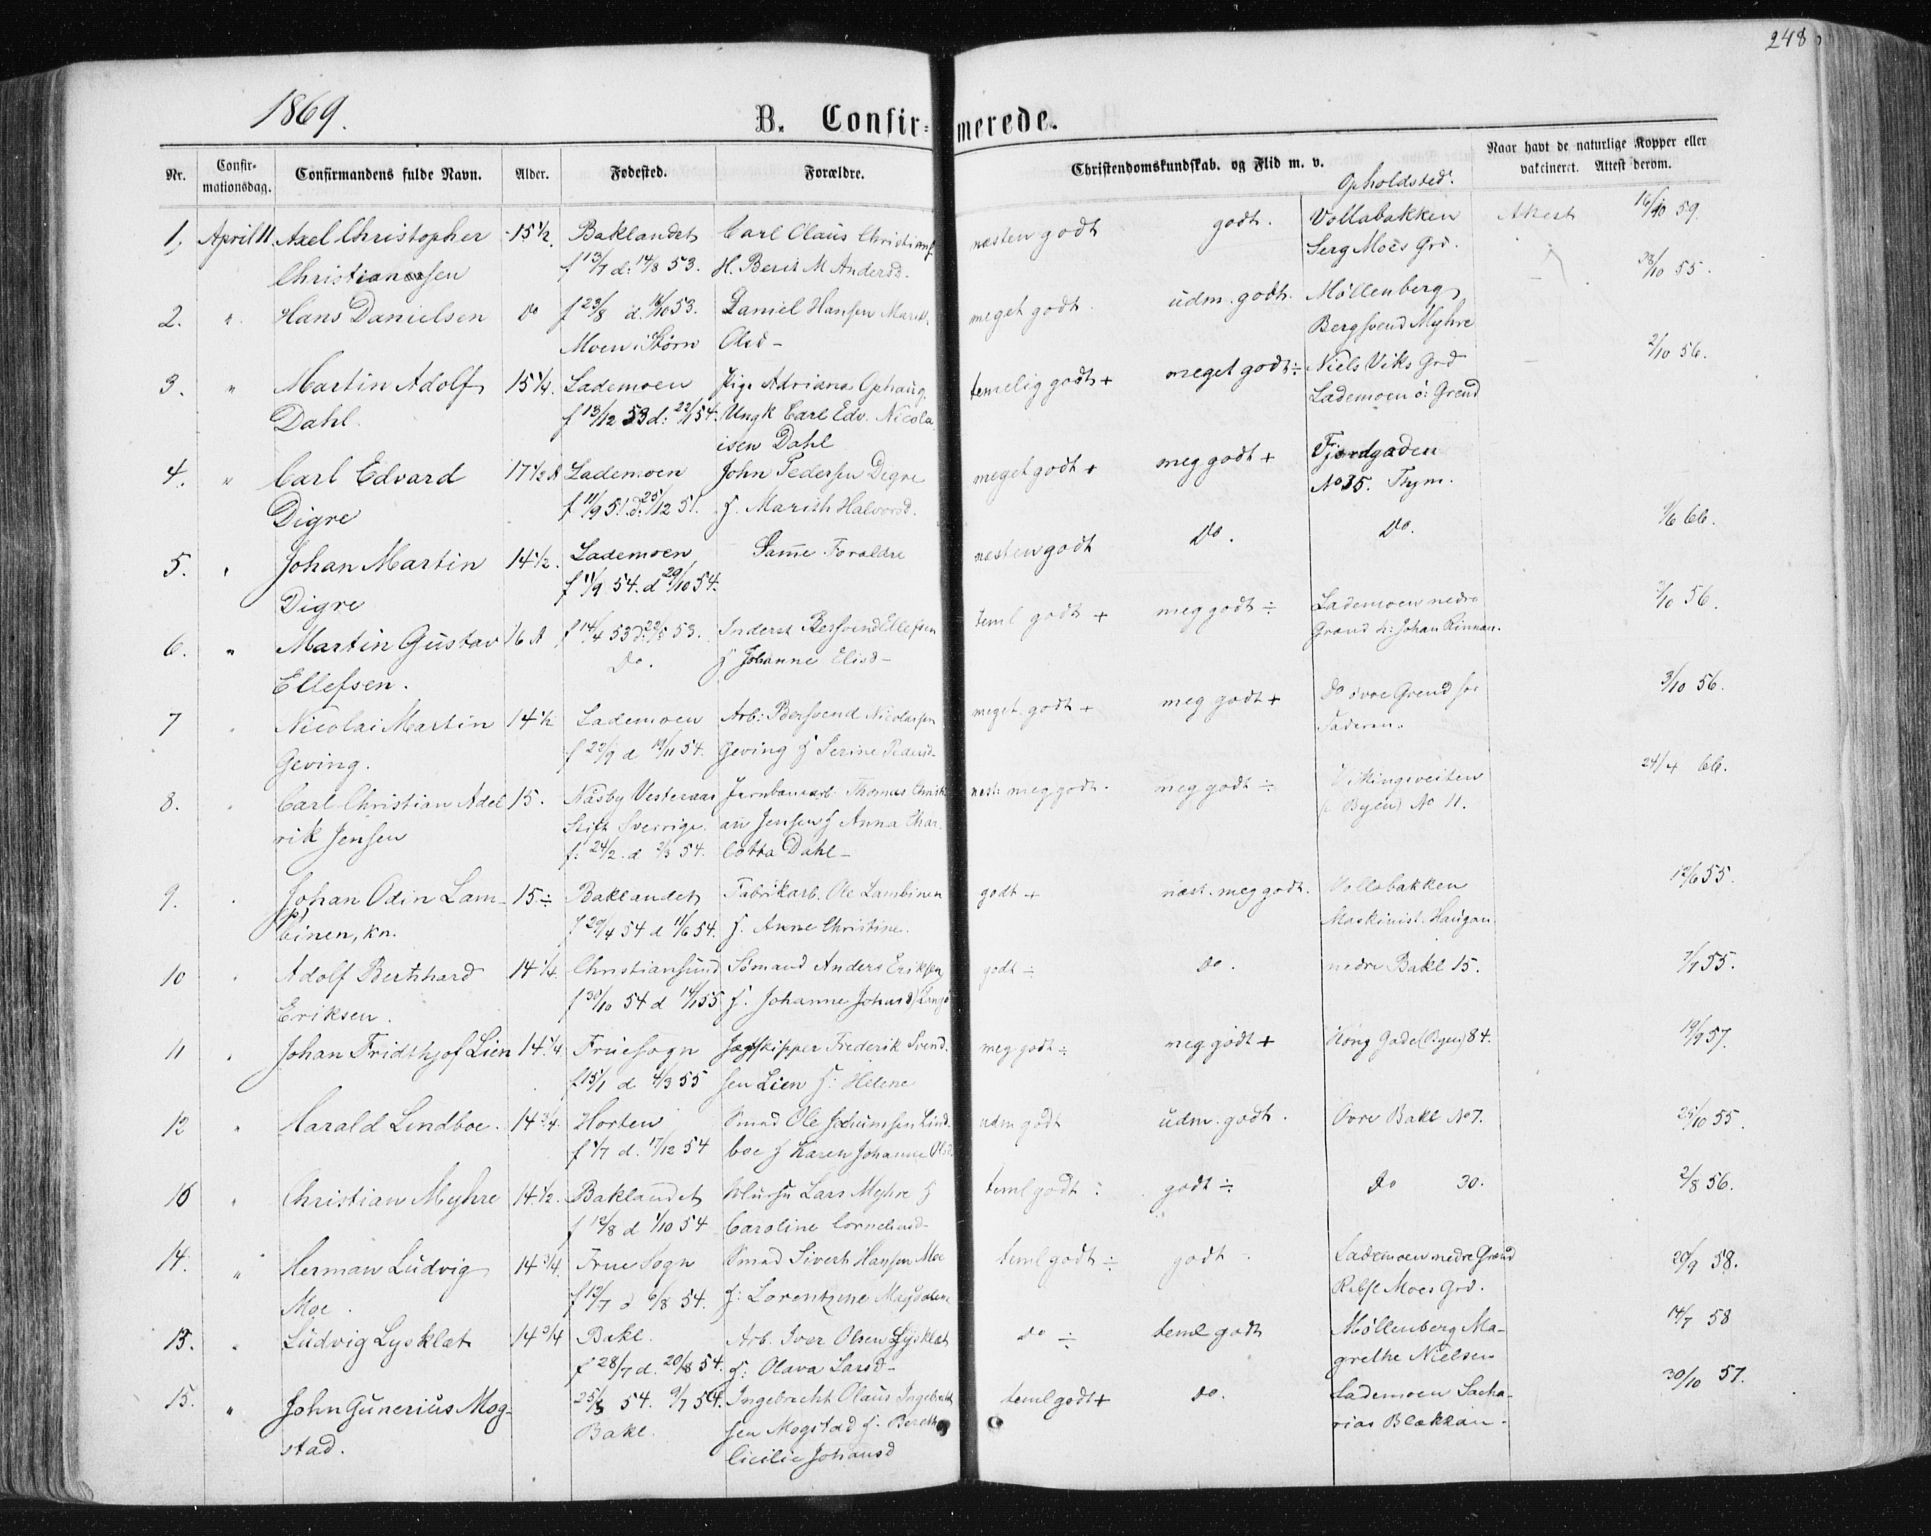 248
1869.
B. Confir- merede.
Nr. Confir- mationsdag. Confirmandens fulde Navn. Alder. Fødested. Forældre. Christendomskundskab. og Flid m. v. Opholdsted. Naar havt de naturlige Kopper eller vakcineret. Attest derom.
1, April 11 Axel Christopher 15 1/2. Baklandet Carl Olaus Christiansf næsten godt godt. Vollabakken Attest 16/10 59.
Christiansen f 13/7 d: 14/8 53. H. Berit M Andersd. Serg Moes Grd.
2. " Hans Danielsen do f 23/8 d. 16/10 53. Daniel Hansen Marit meget godt udm. godt. Møllenberg 28/10 55.
Moen i Størn Olsd - Bergsvend Myhre
3. " Martin Adolf 15 1/4. Lademoen Pige Adriana Ophaug temelig godt + meget godt ÷ Niels Viks Grd 2/10 56.
Dahl. f 13/12 53 d: 22/1 54. Ungk Carl Edv. Nicola Lademoen ö: Grend
isen Dahl
4. " Carl Edvard 17 1/2 A Lademoen John Pedersen Digre meget godt + meg godt + Fjordgaden
Digre f 11/9 51. d. 25/12 51. f. Marith Halvorsd. No 35. Thym.
5. " Johan Martin 14 1/2. Lademoen Same Foraldre næsten godt Do. Do. 1/6 66.
Digre f 11/9 54. d 29/10 54.
6. " Martin Gustav 16 A f 14/4 53 d. 22/5 53. Inderst Bersvend Ellefsen teml godt + meg godt ÷ Lademoen nedre 2/10 56.
Ellefsen. Do. f Johanne Elisd - Grand h: Johan Rinnan.
7 " Nicolai Martin 14 1/2 Lademoen Arb: Bersvend Nicolaisen meget godt + meg godt + Do övre Grend hos 3/10 56.
Geving. f 22/9 d 19/11 54. Geving f Serine Pedersd. Faderen.
8. " Carl Christian Adel 15. Näsby Vesteraas Jernbanearb. Thomas Christi næst meg godt. meg godt ÷ Vikingsveiten 24/4 66.
rik Jensen Stift Sverrige. an Jensen f Anna Char (i Byen) No 11.
f: 24/2. d 2/3 54. lotta Dahl -
9. " Johan Odin Lam- 15 ÷ Baklandet Fabrikarb. Ole Lambinen godt + næst. meg godt. Vollabakken 12/6 55.
binen, kn. f 29/4 54 d 11/6 54. f. Anne Christine. Maskinist Haugan
10 " Adolf Bernhard 14 1/4. Christiansund Sömand Anders Eriksen godt ÷ do. nedre Bakl 15. 7/7 55.
Eriksen. f 30/10 54 d 14/1 55 f. Johanne Johnsd
11 " Johan Fridthjof Lien 14 1/4 Fruesogn Jagtskipper Frederik Svend. meg godt ÷ meg godt + Kong Gade (Byen) 84. 19/9 57.
f 15/1 d 4/3 55 sen Lien f: Helene
12 " Harald Lindboe. 14 3/4. Horten Smed Ole Jochumsen Lind udm godt udm. godt. Ovre Bakl No 7. 25/10 55.
f 4/7 d. 17/12 54 boe f Karen Johanne Olsd
13 " Christian Myhre 14 1/2. Baklandet Lars Myhre f teml godt ÷ godt ÷ Do 30. 2/8 56.
f 12/8 d 1/10 54 Caroline Corneliusd -
14. " Herman Ludvig 14 3/4. Frue Sogn Smed Sivert Hansen Moe teml godt ÷ godt. Lademoen nedre Grænd 20/9 58.
Moe. f 12/7 d 6/8 54. f: Lorentzine Magdalene Rolfst Moes Grd.
15. " Ludvig Lysklæt 14 3/4 Bakl. Arb. Iver Olsen Lysklæt do ÷ teml godt Møllenberg Ma- 14/7 58
f 28/7 d. 20/8 54. f: Olava Larsd - grethe Nielsen
15. " John Gunerius Mog- 25/5 54. 9/7 54. Ingebrecht Olaus Ingebrigt teml godt + do. Lademoen Sacha- 30/10 57.
stad. Bakl. sen Mogstad f. Bereth rias Blækkan.
Cicilie Johansd